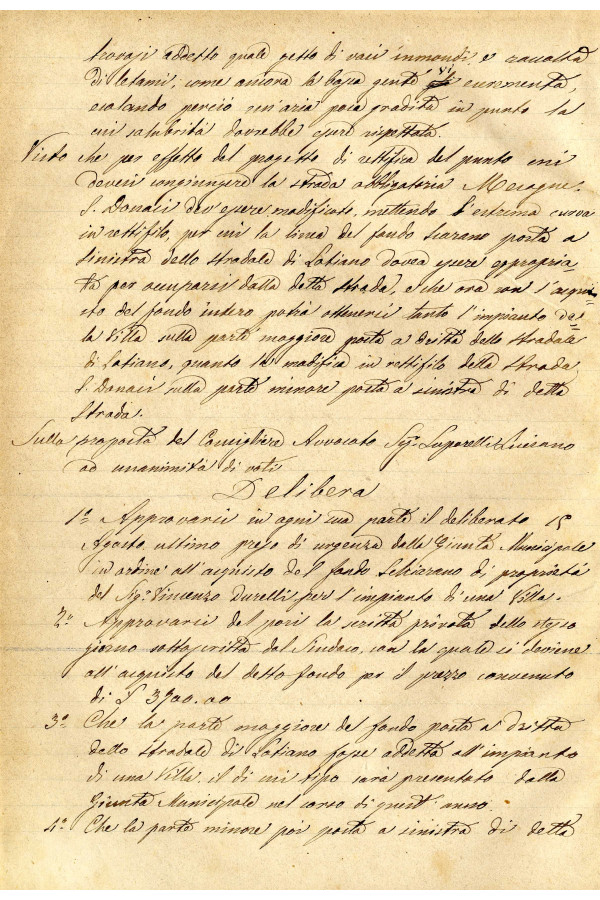 trovasi addetto quale getto di vasi immondi, e raccolta
di letami; come ancora la bassa gente vi escrementa,
esalando perciò un'aria poco gradita in punto la
cui salubrità dovrebbe essere rispettata.
Visto che per effetto del progetto di rettifica del punto in cui
devesi congiungere la strada obbligatoria Mesagne-
S. Donaci dev'essere modificato, mettendo l'estrema curva
in rettifilo, per cui la linea del fondo Scarano posta a
sinistra dello stradale di Latiano dovea essere appropria-
ta per occuparsi dalla detta strada, e che ora con l'acqui-
sto del fondo intero potrà ottenersi tanto l'impianto del-
la Villa sulla parte maggiore posta a dritta dello stradale
di Latiano, quanto la modifica in rettifilo della strada
S. Donaci sulla parte minore posta a sinistra di detta
strada.
Sulla proposta del Consigliere Avvocato Sigr. Luparelli Luciano
ad unanimità di voti
Delibera
1º Approvarsi in ogni sua parte il deliberato 15
Agosto ultimo preso di urgenza dalla Giunta Municipale
in ordine all'acquisto del fondo Schiarano di proprietà
del Sigr. Vincenzo Durelli per l'impianto di una Villa.
2º Approvarsi del pari la scritta privata dello stesso
giorno sottoscritta dal Sindaco, con la quale si deviene
all'acquisto del detto fondo per il prezzo convenuto
di £ 3900.00
3º Che la parte maggiore del fondo posta a dritta
dello stradale di Latiano fosse addetta all'impianto
di una Villa il di cui tipo sarà presentato dalla
Giunta Municipale nel corso di quest'anno.
4º Che la parte minore poi posta a sinistra di detta